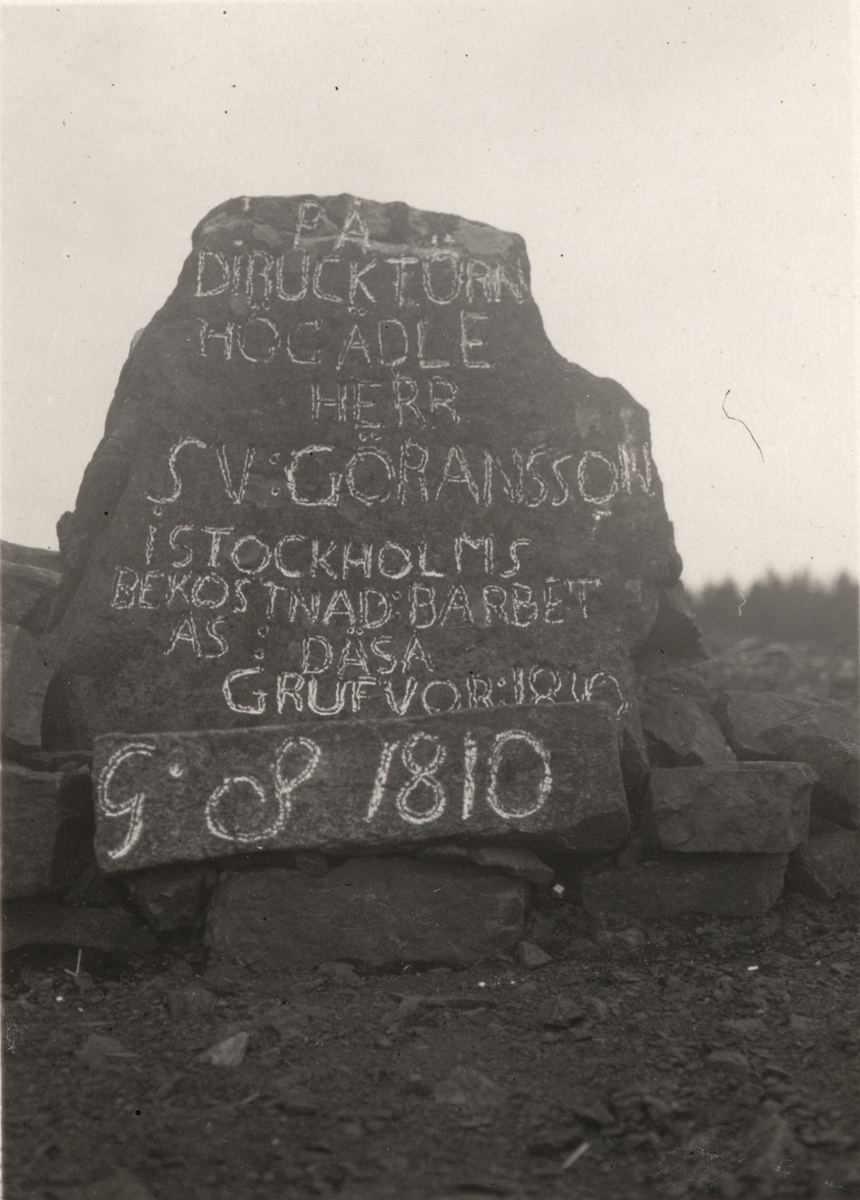 PÅ
DIRUCKTÖRN
HÖGÄDLE
HERR
SV: GÖRANSSON
I STOCKHOLMS
BEKOSTNAD: BARBET
AS : DÄSA
GRUFVOR: 1810
G. S 1810